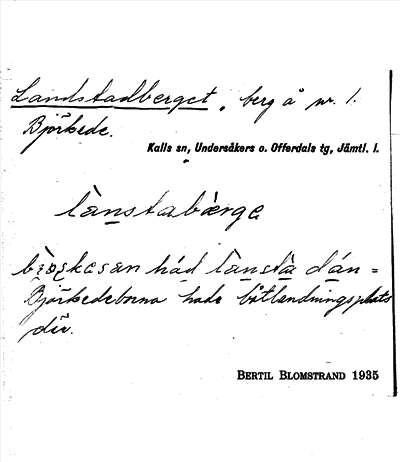 Landstadberget, berg å nr. 1.
Björkede.
Kalls sn, Undersåkers o. Offerdals tg, Jämtl. l.
lànstabærge
bjöskesan hád lànsta dán =
Björkedeborna hade båtlandningsplats
där.
BERTIL BLOMSTRAND 1935